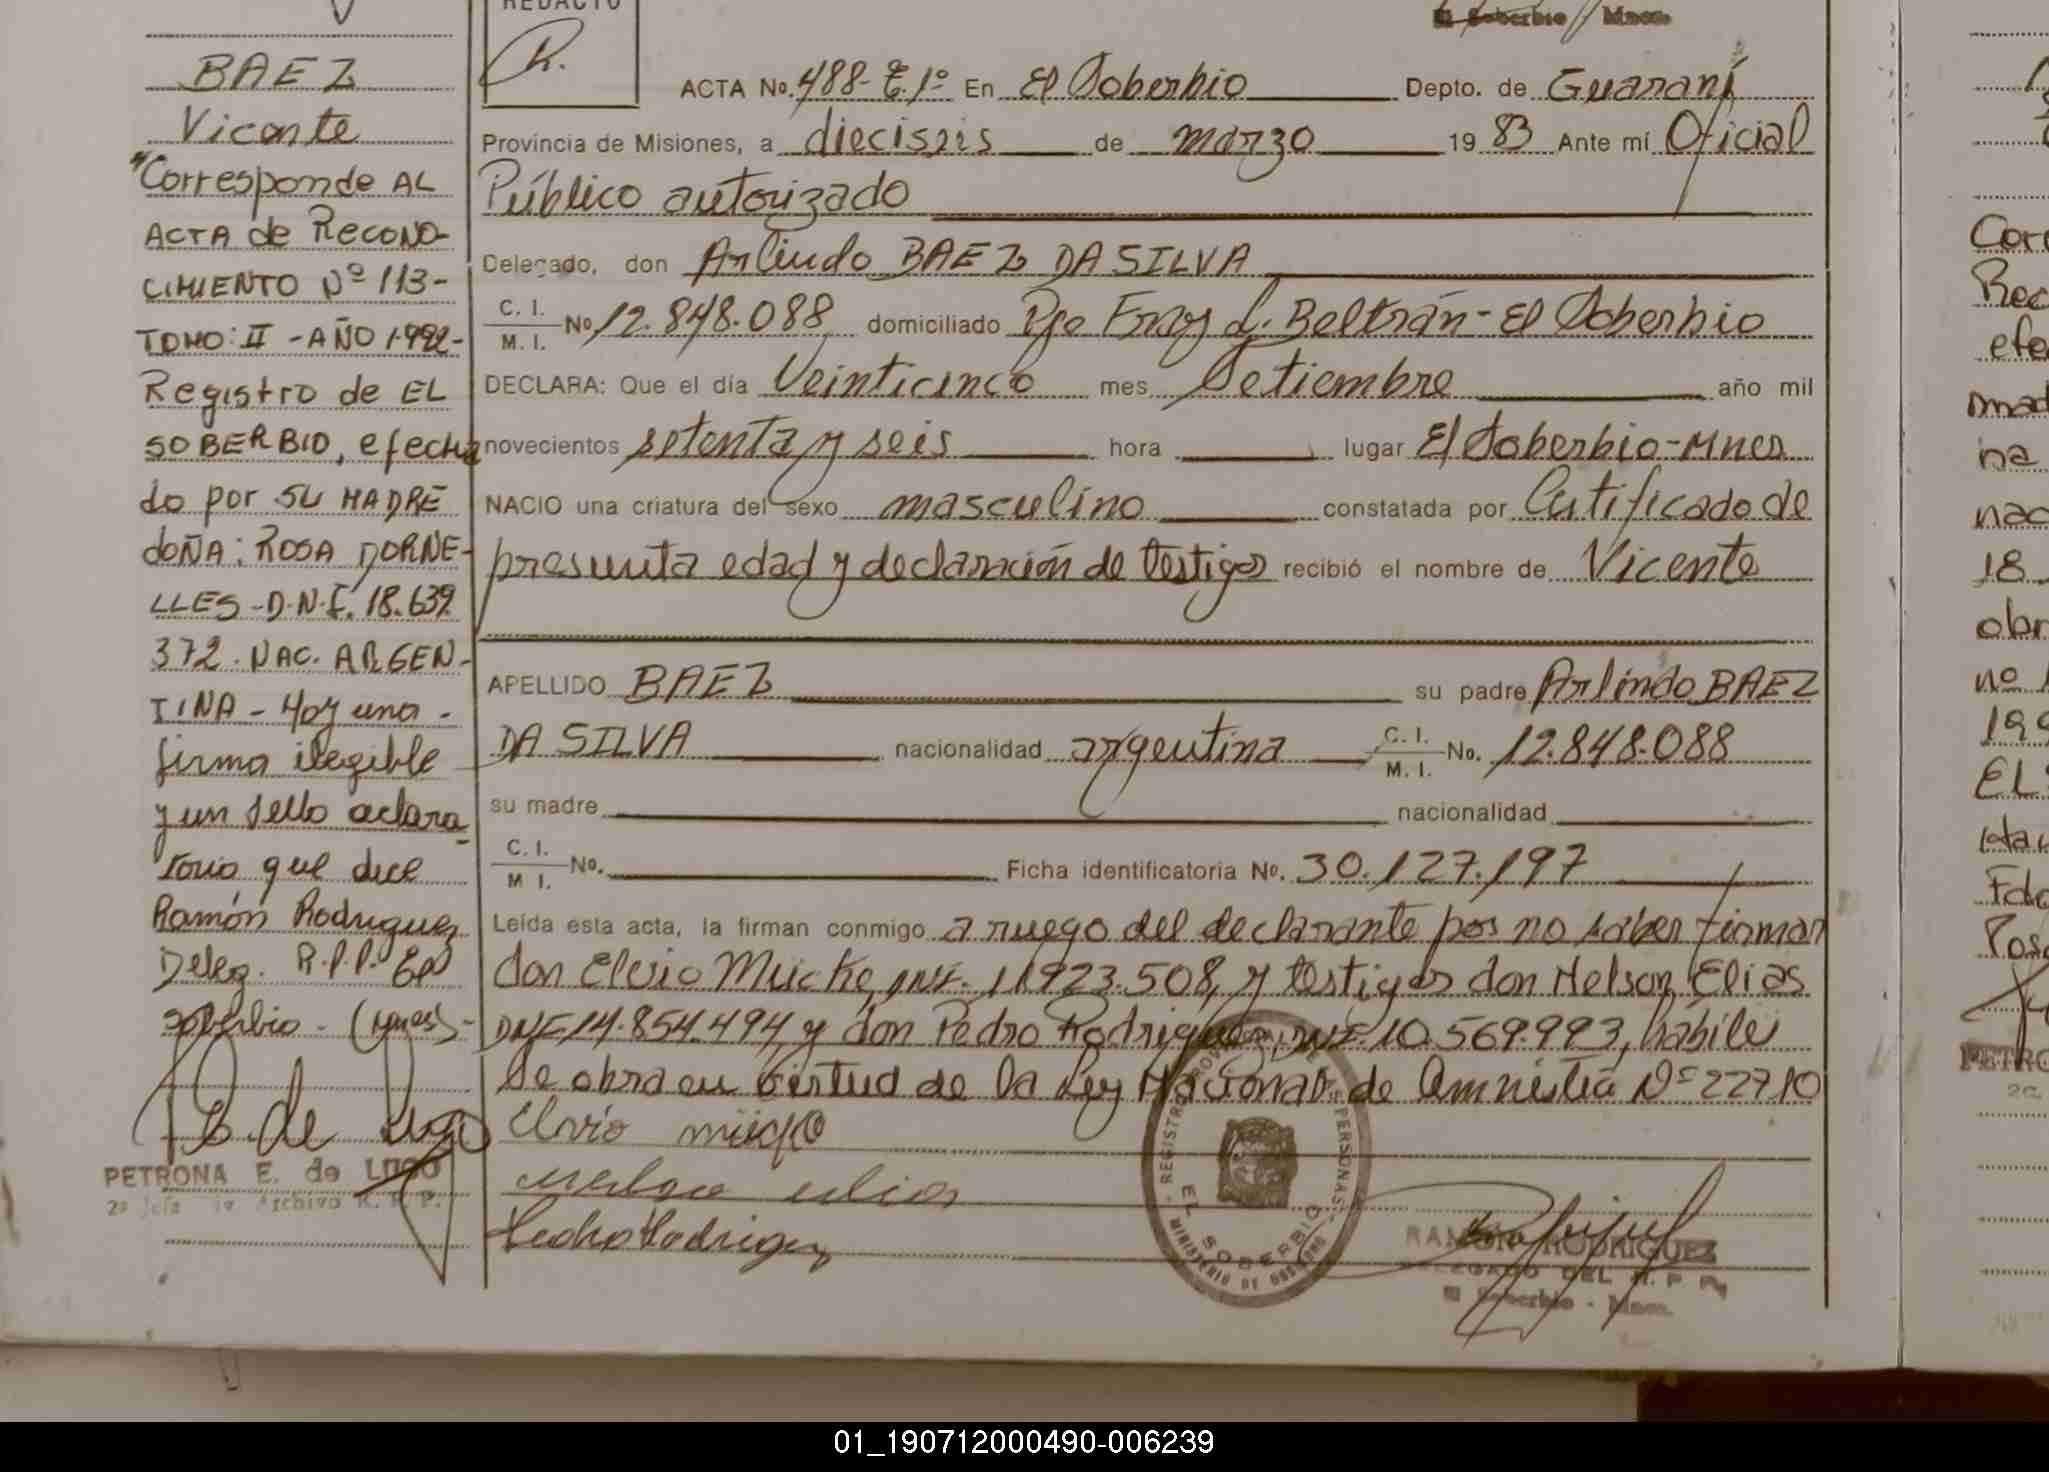 BAEZ
Vicente
"Corresponde AL
ACTA de RECONO-
CIMIENTO Nº 113-
TOMO: II - AÑO 1.992-
Registro de EL
SOBERBIO, efectua
do por SU MADRE
doÑA: ROSA DORNE-
LLES - D.N.I. 18.639
372. NAC. ARGEN-
TINA - Hay una -
firma ilegible
y un sello aclara-
torio que dice
Ramón Rodriguez
Deleg. R.P.P. El
Soberbio - (Mnes) -
PETRONA E. de LUGO
2º Jefe de Archivo R. P. P.
REDACTO
R.
El Soberbio Mnes.
ACTA No. 488- T. 1º En El Soberbio Depto. de Guaraní
Provincia de Misiones, a dieciseis de marzo 19 83 Ante mí Oficial
Público autorizado
Delegado, don Arlindo BAEZ DA SILVA
C. I.
M. I. No 12.848.088 domiciliado Pje Fray L. Beltrán - El Soberbio
DECLARA: Que el día Veinticinco mes Setiembre año mil
novecientos setenta y seis hora lugar El Soberbio-Mnes
NACIO una criatura del sexo masculino constatada por Certificado de
presunta edad y declaración de testigos recibió el nombre de Vicente
APELLIDO BAEZ su padre Arlindo BAEZ
DA SILVA nacionalidad argentina C. I.
M. I. No. 12.848.088
su madre nacionalidad
C. I.
M I. No. Ficha identificatoria No. 30.127.197
Leída esta acta, la firman conmigo a ruego del declarante por no saber firmar
don Elvio Mücke, DNI. 11.923.508, y testigos don Nelson Elias
DNI 14.854.494, y don Pedro Rodriguez, DNI. 10.569.993, hábiles
Se obra en virtud de la Ley Nacional de Amnistia Nº 22710
Elvio
Nelson elias
Pedro Rodriguez
REGISTRO PROVINCIAL DE LAS PERSONAS
EL SOBERBIO
MINISTERIO DE GOBIERNO
RAMON RODRIGUEZ
DELEGADO DEL R. P. P.
El Soberbio - Mnes.
Cor
Rec
efe
mad
na
nac
18
obr
no
199
EL
Fdo
Pos
PETRO
01_190712000490-006239